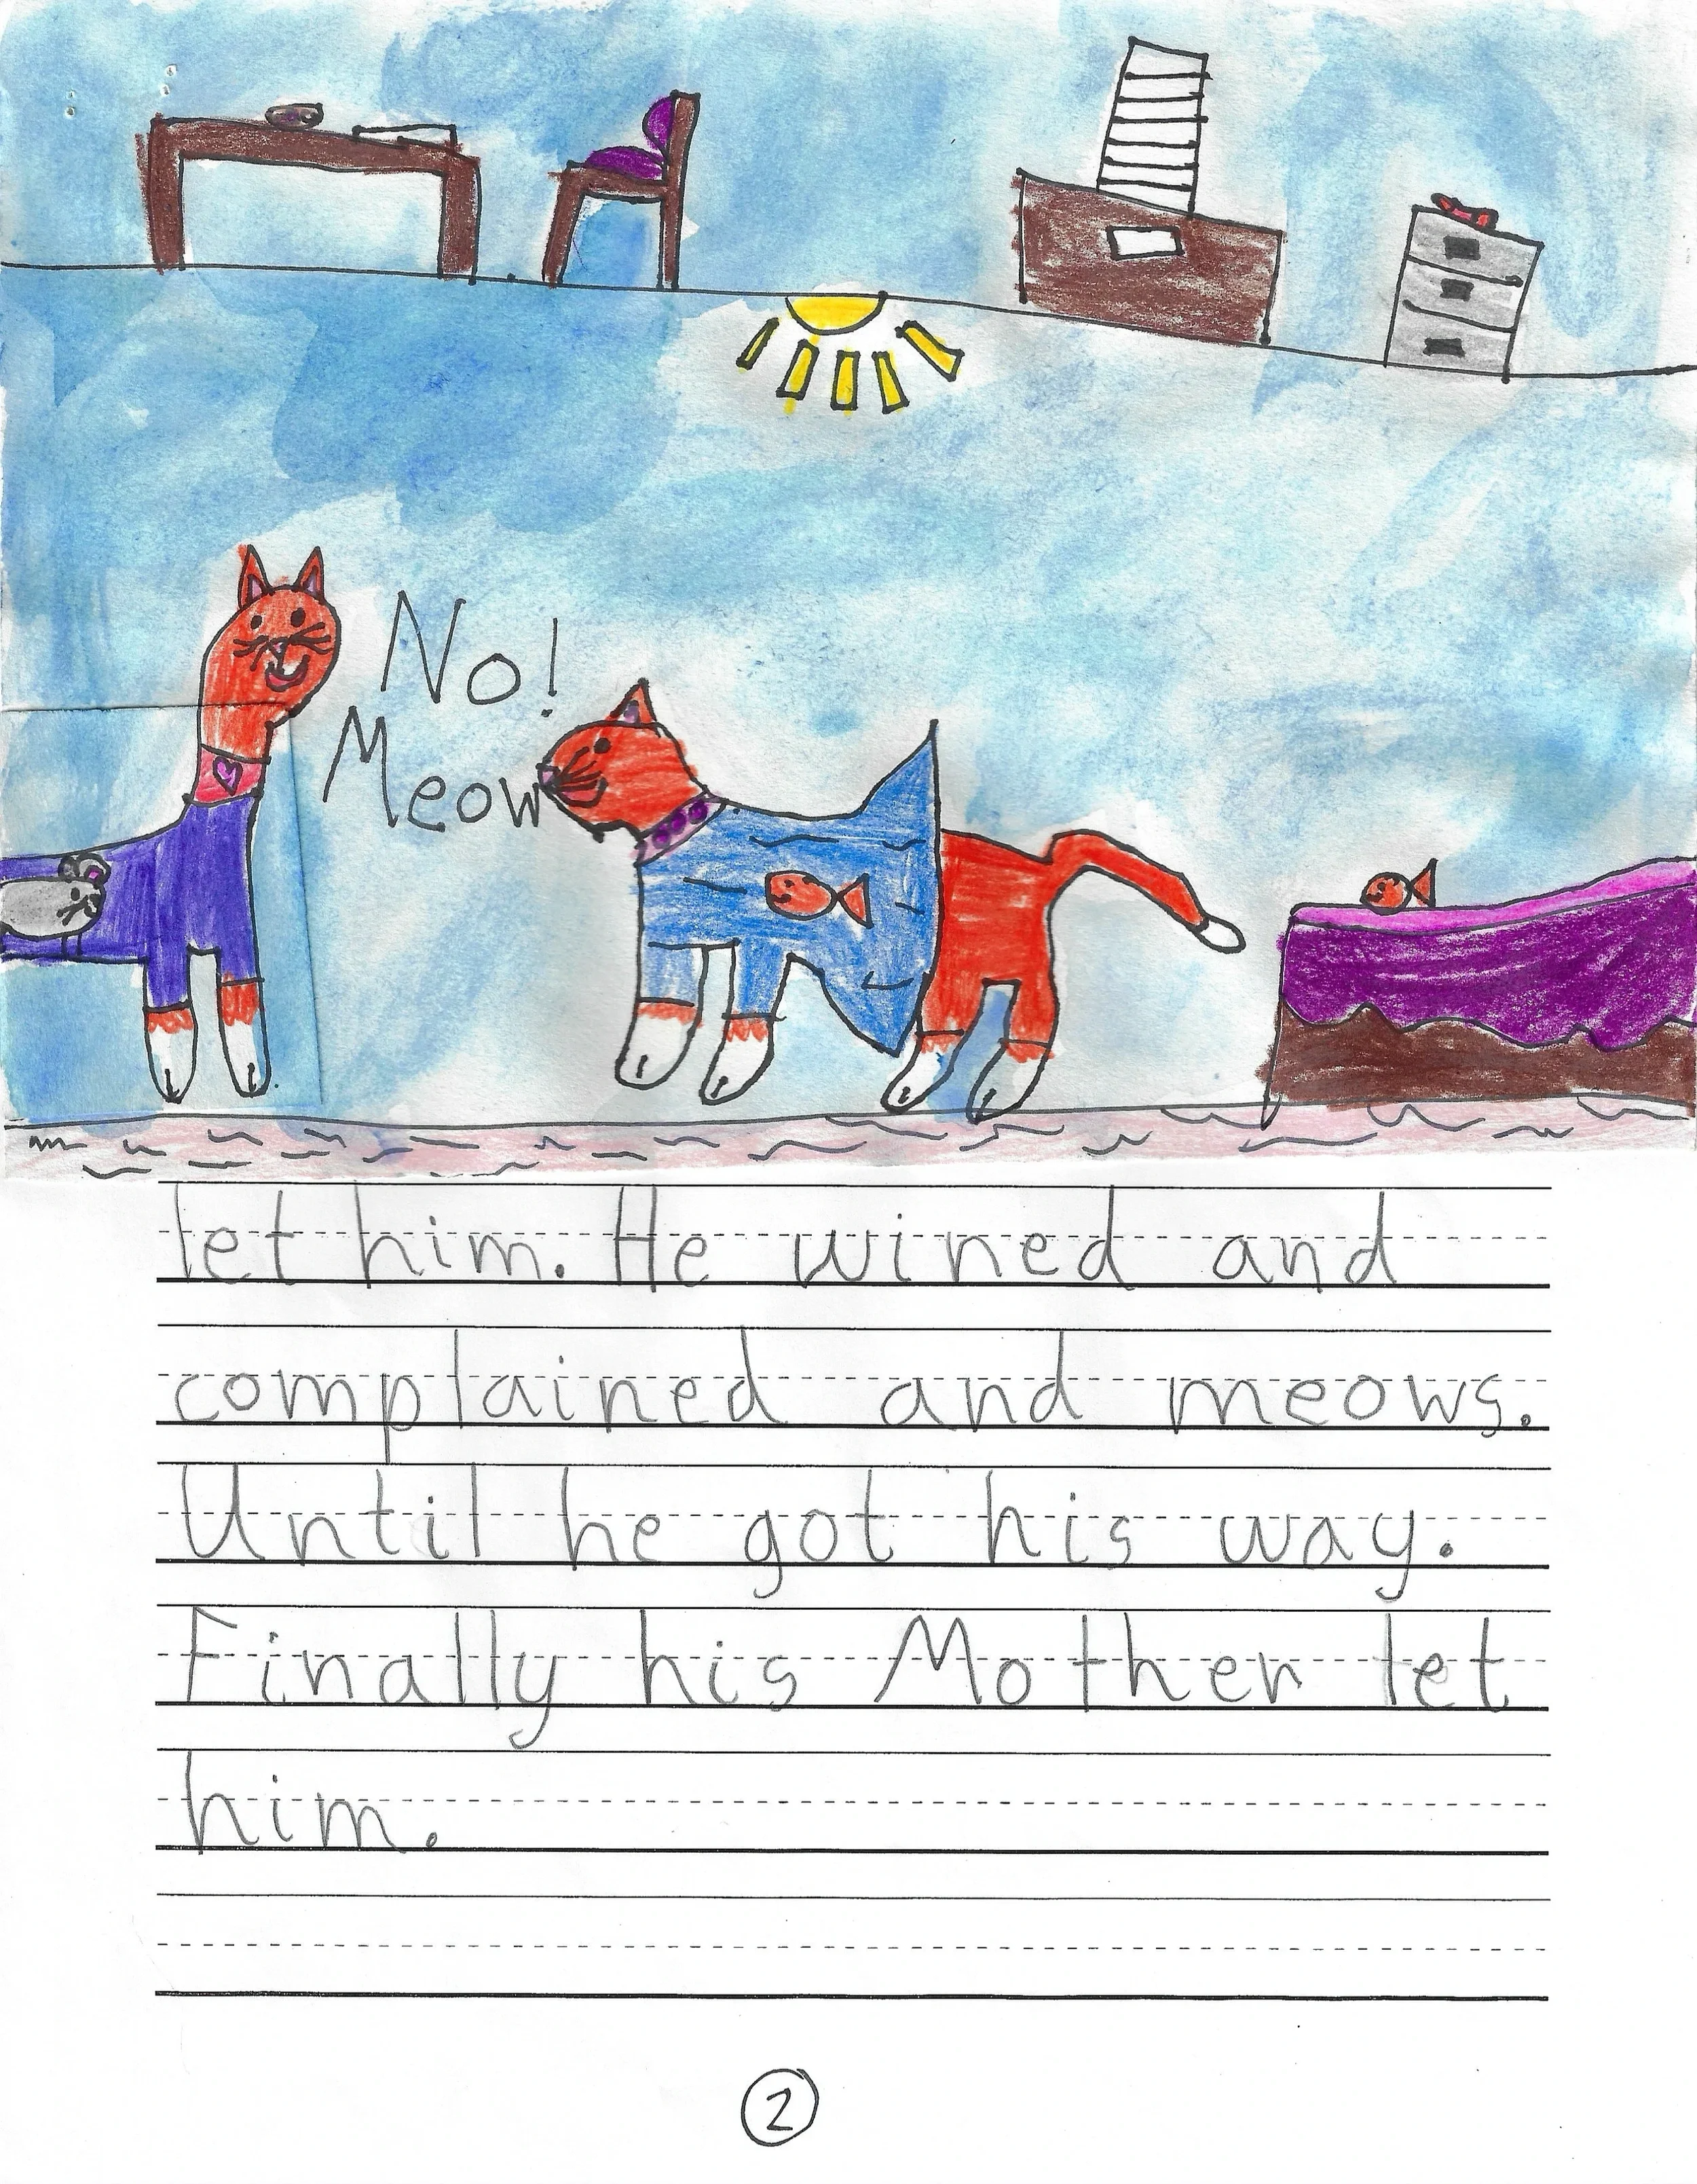 No!
Meow
let him. He wined and
complained and meows.
Until he got his way.
Finally his Mother let
him.
2